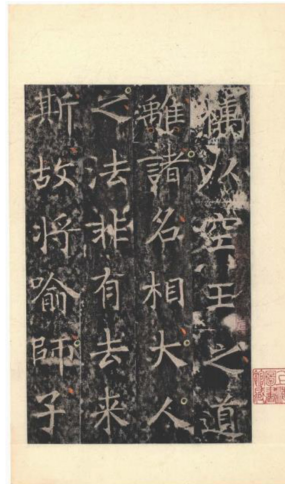 以空王之道
離諸名相大人
之法非有去来
斯故将喻師子